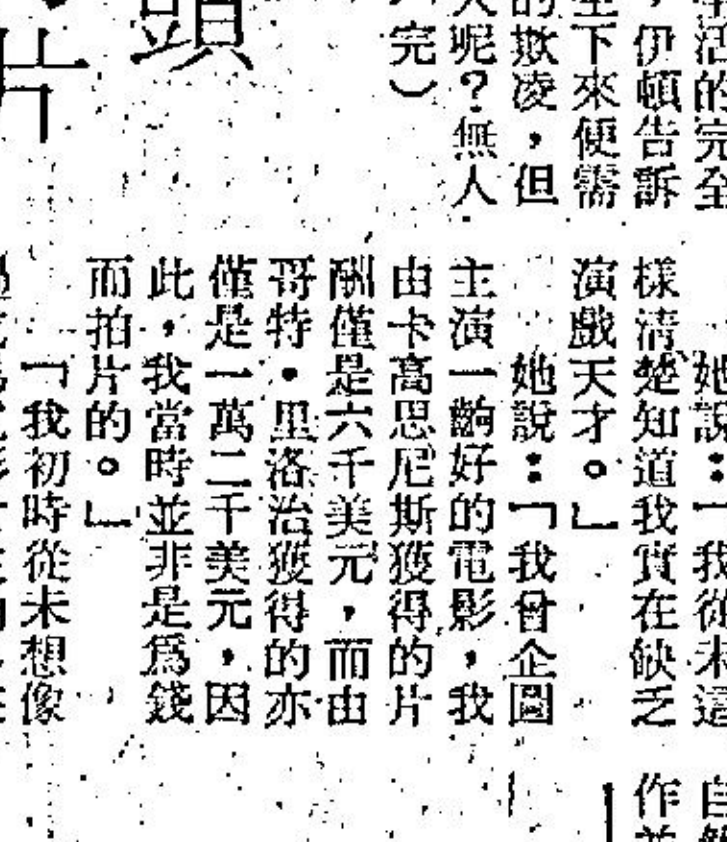 活的完全
，伊頓告訴
下來便需
的欺凌，但
呢？無人
完）
頭
片
她說：「我從未這
樣清楚知道我實在缺乏
演戲天才。」
她說：「我曾企圖
主演一齣好的電影，我
由卡高思尼斯獲得的片
酬僅是六千美元，而由
哥特・里洛治獲得的亦
僅是一萬二千美元，因
此，我當時並非是爲錢
而拍片的。」
「我初時從未想像
自
作